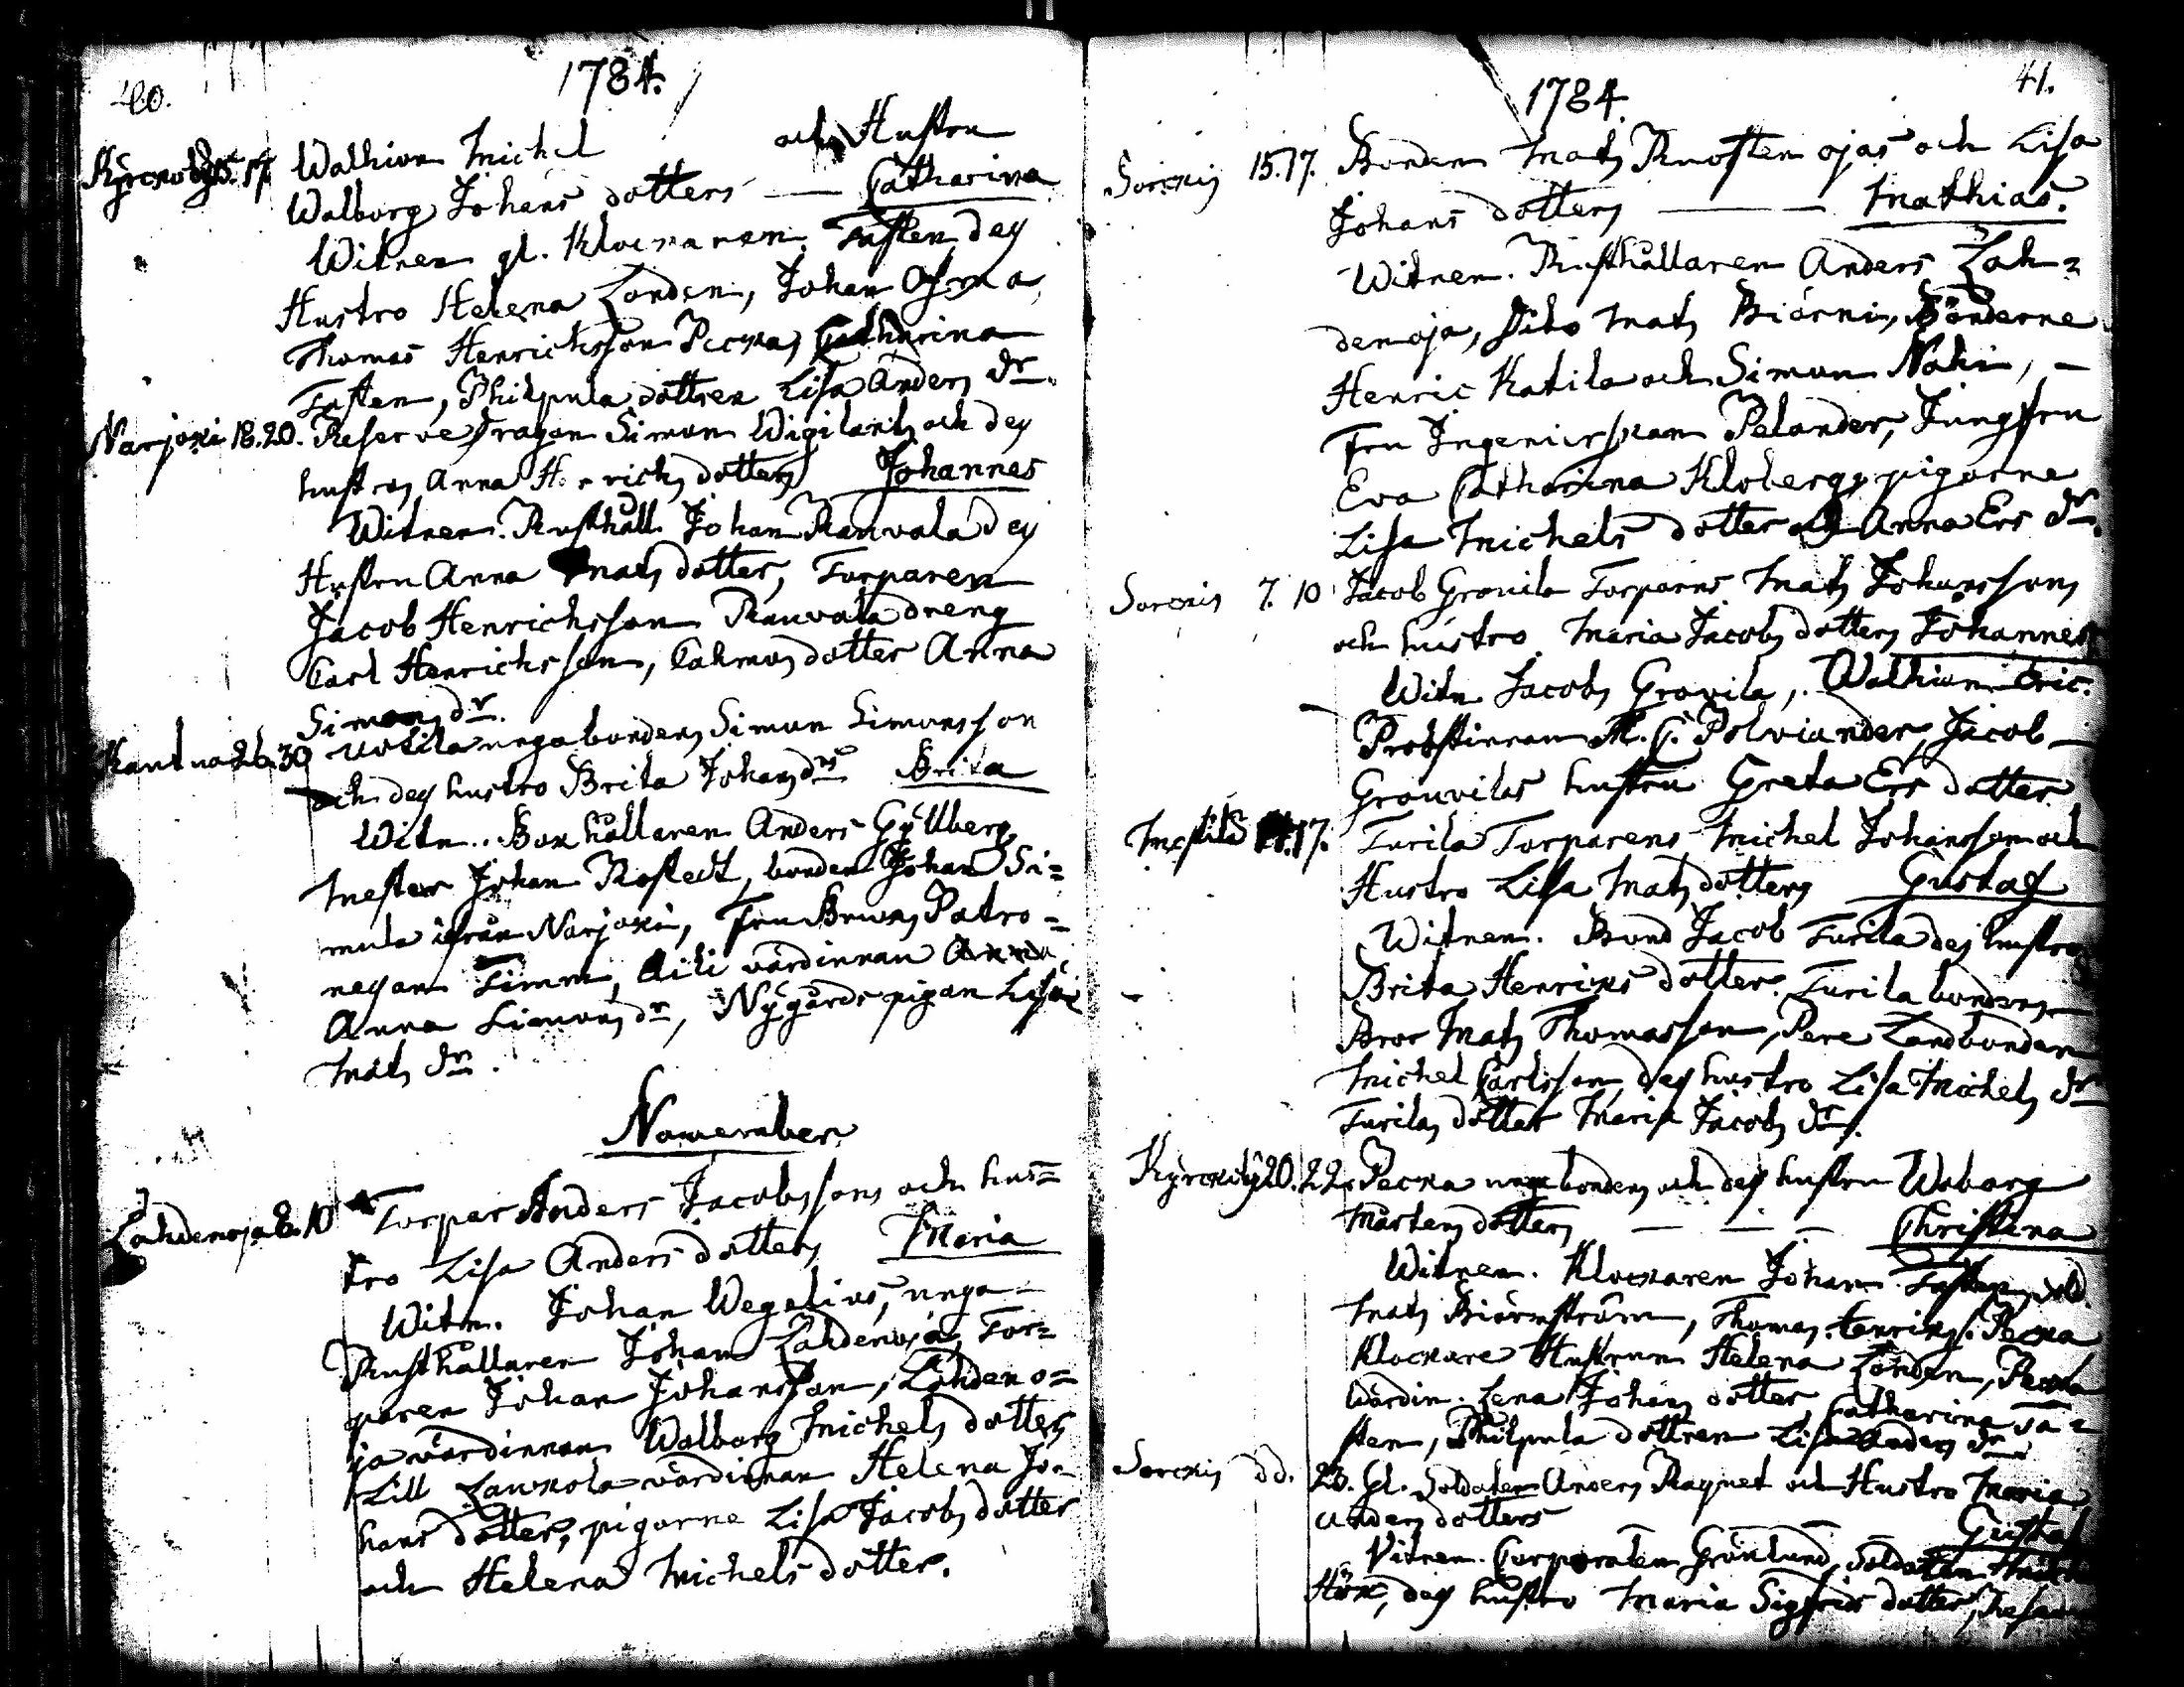 40.
1784.
Kÿrckoby 15. 17. Walhion Michel och Hustru
Walborg Johans dotters — Catharina
Witnen gl. Klockaren Fasten dess
Hustro Helena Londen, Johan
Thomas Henrichsson Pecka, Catharina
Fasten, Philpula dottren Lisa Anders dr.
Narjocki 18. 20. Reserve Dragon Simon Wigilants och dess
hustros Anna Henrichs dotters Johannes
Witnen. Rusthåll. Johan Rauvala dess
Hustru Anna Mats dotter, Torparen
Jacob Henrichsson Rauvala dreng
Carl Henrichsson, dotter Anna
Simons dr.
26. 30 Uotila unga bondens Simon Simonsson
och dess hustro Brita Johans drs Brita
Witn. Boxhållaren Anders Gÿllberg
Mester Johan Rostedt, bonden Johan Si=
mula ifrån Narjocki, Fru Bruks Patro=
nessan Timm, Aili värdinnan
Anna Simons dr, Nÿgårds pigan Lisa
Mats dr.
November
Lahdenoja 8. 10 Torpar Anders Jacobssons och hus=
tro Lisa Anders dotters Maria
Witn. Johan Wegelius, unga
Rusthållaren Johan Lahdenoja, Tor=
paren Johan Johansson, Lahdeno=
ja värdinnan Walborg Michels dotter
Lill Lauckola värdinnan Helena Jo=
hans dotter, pigorne Lisa Jacobs dotter
och Helena Michels dotter.
41.
1784.
Sorckis 15. 17. Bonden Mats Ruosten ojas och Lisa
Johans dotters — Mathias.
Witnen. Rusthållaren Anders Lah=
denoja, Dito Mats Biörni, Bönderne
Henric Katila och Simon Nohi, —
Fru Ingenieurskan Pelander, Jungfru
Eva Catharina Kloberg, pigorne
Lisa Michels dotter och Anna Ers dr.
Sorckis 7. 10 Jacob Grouila Torparns Mats Johanssons
och hustro Maria Jacobs dotters Johannes
Witn Jacob Grouila, Walhion Eric.
Probstinnan M. C. Polviander, Jacob —
Grouvilas hustru Greta Ers dotter.
17. Turila Torparens Michel Johansson och
Hustro Lisa Mats dotters Gustaf
Witnen. Bond Jacob Turila des hustro
Brita Henrics dotter. Turila bondens
Bror Mats Thomasson, Pere Landbonden
Michel Carlsson, dess hustro Lisa Michels dr
Turilas dotter Maria Jacobs dr.
Kÿrckobÿ 20. 22. Pecka unga bondens och dess hustru Waborg
Mårtens dotters — — — Christina
Witnen. Klockaren Johan Fasten,
Mats Biörnström, Thomas Henrics. Pecka
Klockare Hustrun Helena Londen, Pecka
wärdin. Lena Johans dotter, Catharina Fa=
sten, Philpula dottren Lisa Anders dr
Sorckis dd. 23. Gl. Soldaten Anders Ragnet och Hustro Maria
Anders dotters Gustaf
Vitnen. Corporalen Grönlund, Soldaten
Höx, dess hustro Maria Sigfrids dotter,